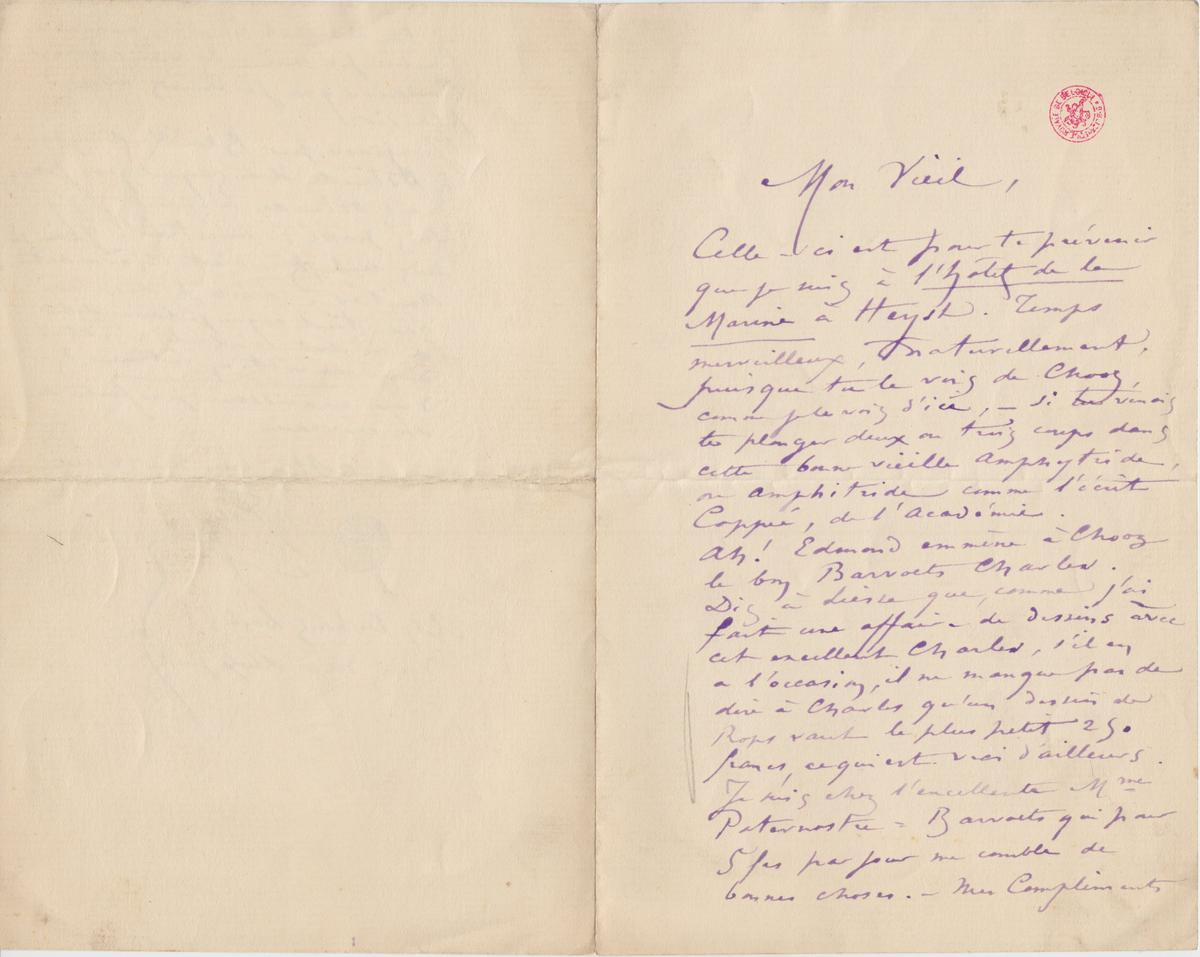 BIBLIOTHÈQUE ROYALE DE BELGIQUE
Mon Vieil,
Celle-ci est pour te prévenir
que je suis à l'hôtel de la
Marine à Heyst. Temps
merveilleux, naturellement,
puisque tu le vois de Chooz,
comme je le vois d'ici, – si tu venais
te plonger deux ou trois coups dans
cette bonne vieille Amphytride,
ou amphitride comme l'écrit
Coppée, de l'Académie.
Ah! Edmond emmène à Chooz
le bon Barvoets Charles.
Dis à Liesse que, comme j'ai
fait une affaire de dessins avec
cet excellent Charles, s'il en
a l'occasion, il ne manque pas de
dire à Charles qu'un dessin de
Rops vaut le plus petit 250
francs, ce qui est vrai d'ailleurs.
Je suis chez l'excellente Mme
Paternostre = Barvoets qui pour
5 frs par jour me comble de
bonnes choses. – Mes Compliments